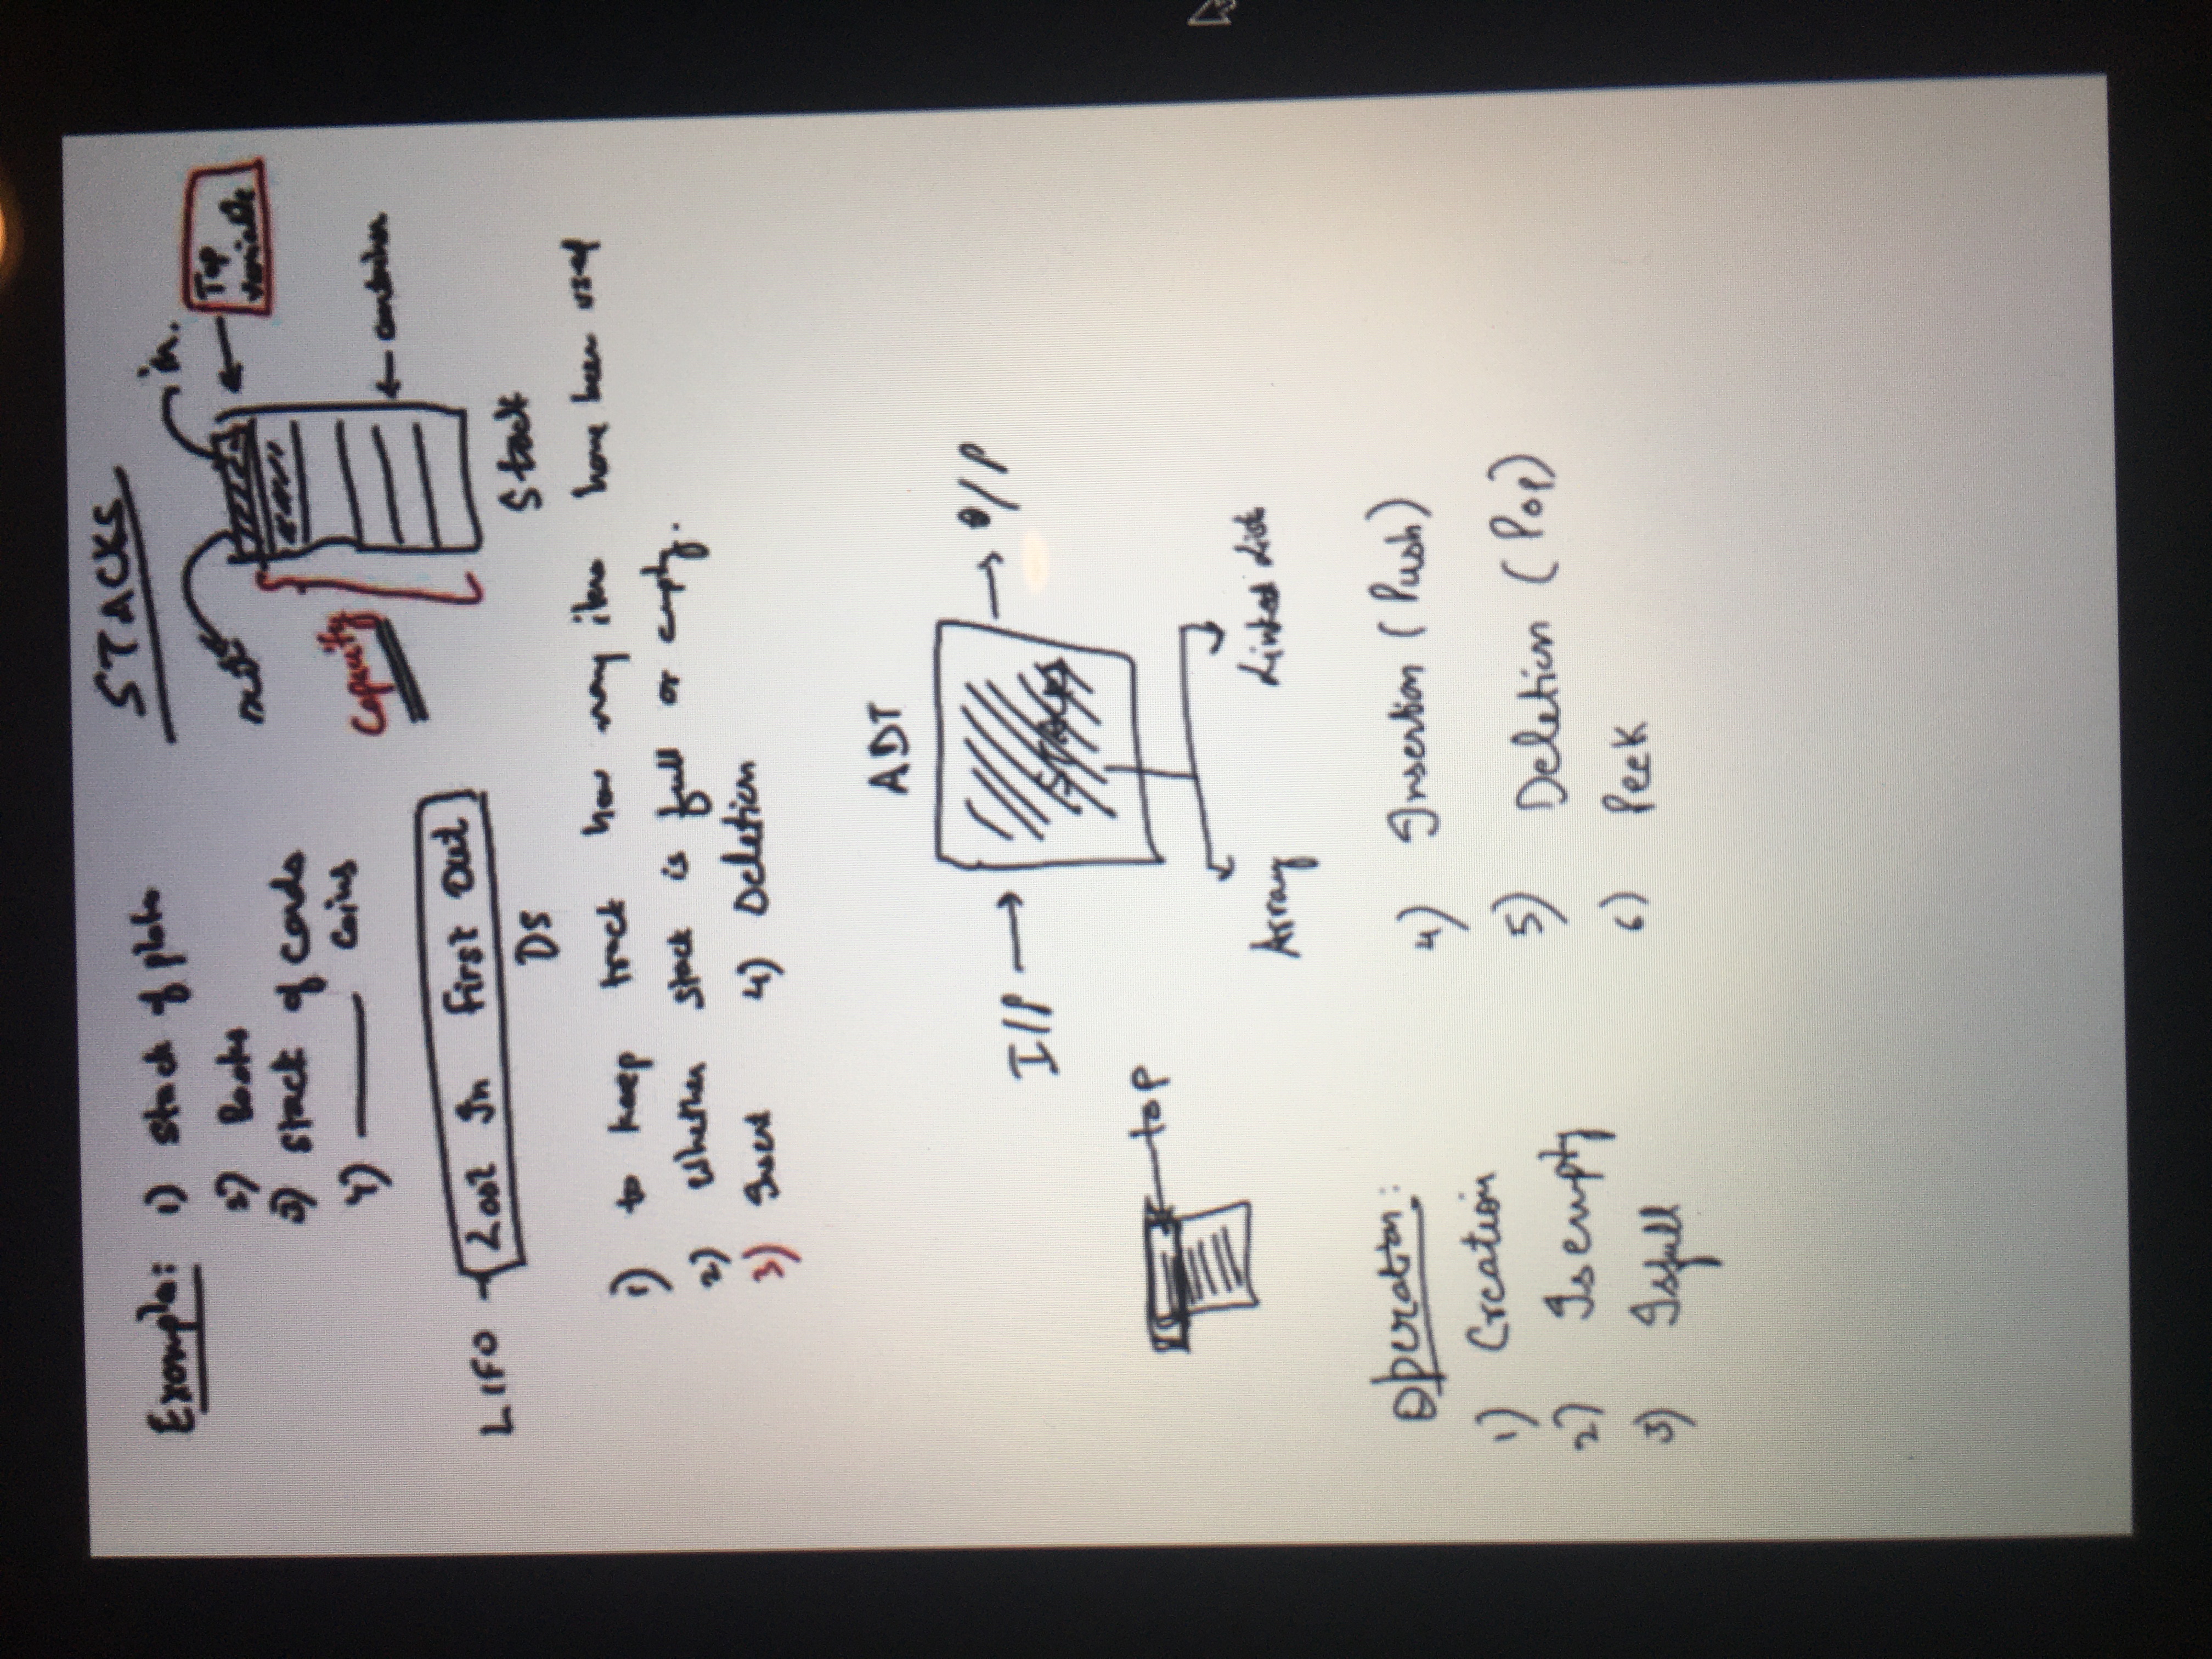 STACKS
Example: 1) stack of plate
2) Books
3) stack of cards
4) ——— Coins
in.
out
Top
variable
Capacity
container
Stack
LIFO - Last In First Out
DS
1) to keep track how many items have been used
2) Whether stack is full or empty.
3) Insert 4) Deletion
ADT
I/P → STACKS → O/P
top
Array Linked List
Operation:
1) Creation
2) Isempty
3) Isfull
4) Insertion (Push)
5) Deletion (Pop)
6) Peek